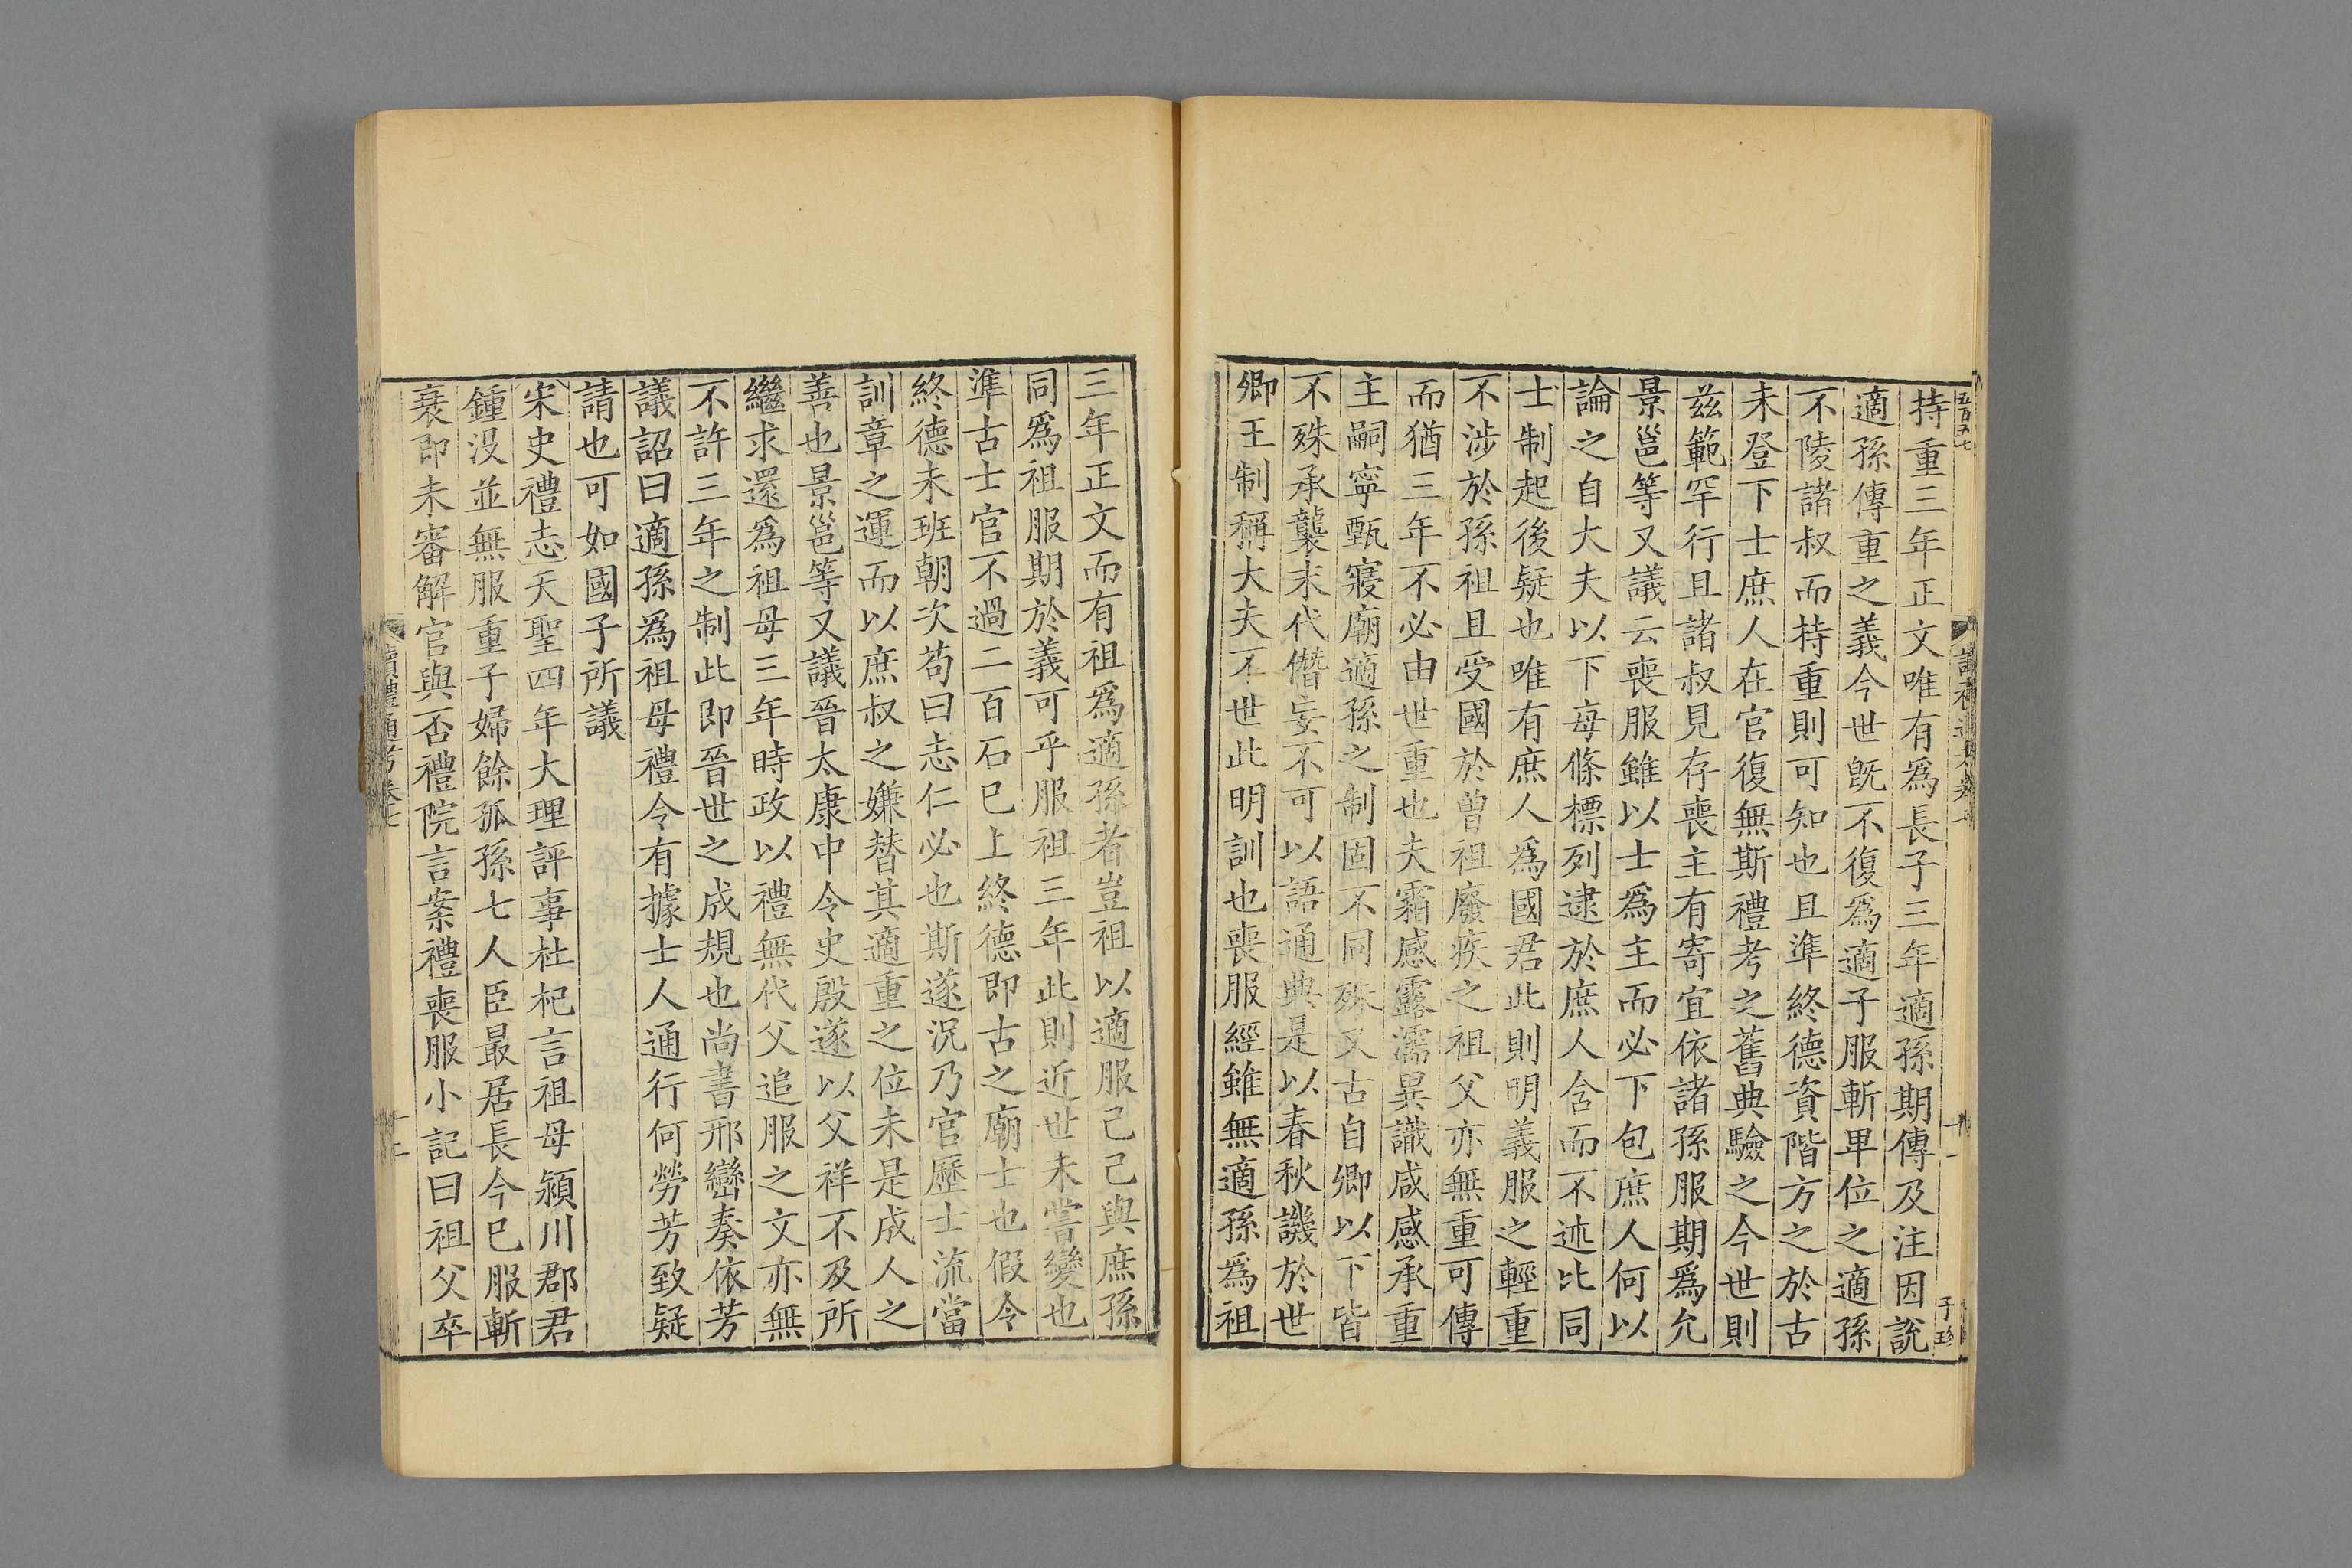 持重三年正文唯有爲長子三年適孫期傳及注因說
適孫傳重之義今世旣不復爲適子服斬卑位之適孫
不陵諸叔而持重則可知也且準終德資階方之於古
未登下士庶人在官復無斯禮考之舊典驗之今世則
茲範罕行且諸叔見存喪主有寄宜依諸孫服期爲允
景邕等又議云喪服雖以士爲主而必下包庶人何以
論之自大夫以下每條標列逮於庶人含而不述比同
士制起後疑也唯有庶人爲國君此則明義服之輕重
不涉於孫祖且受國於曾祖廢疾之祖父亦無重可傳
而猶三年不必由世重也夫霜感露濡異識咸感承重
主嗣寧甄寢廟適孫之制固不同殊又古自卿以下皆
不殊承襲末代僭妄不可以語通典是以春秋譏於世
卿王制稱大夫不世此明訓也喪服經雖無適孫爲祖
三年正文而有祖爲適孫者豈祖以適服己己與庶孫
同爲祖服期於義可乎服祖三年此則近世未嘗變也
準古士官不過二百石已上終德即古之廟士也假令
終德未班朝次苟曰志仁必也斯遂況乃官歷士流當
訓章之運而以庶叔之嫌替其適重之位未是成人之
善也景邕等又議晉太康中令史殷遂以父祥不及所
繼求還爲祖母三年時政以禮無代父追服之文亦無
不許三年之制此即晉世之成規也尚書邢巒奏依芳
議詔曰適孫爲祖母禮令有據士人通行何勞芳致疑
請也可如國子所議
宋史禮志天聖四年大理評事杜杞言祖母潁川郡君
鍾沒並無服重子婦餘孤孫七人臣最居長今已服斬
衰即未審解官與否禮院言案禮喪服小記曰祖父卒
讀禮通考卷七
十二